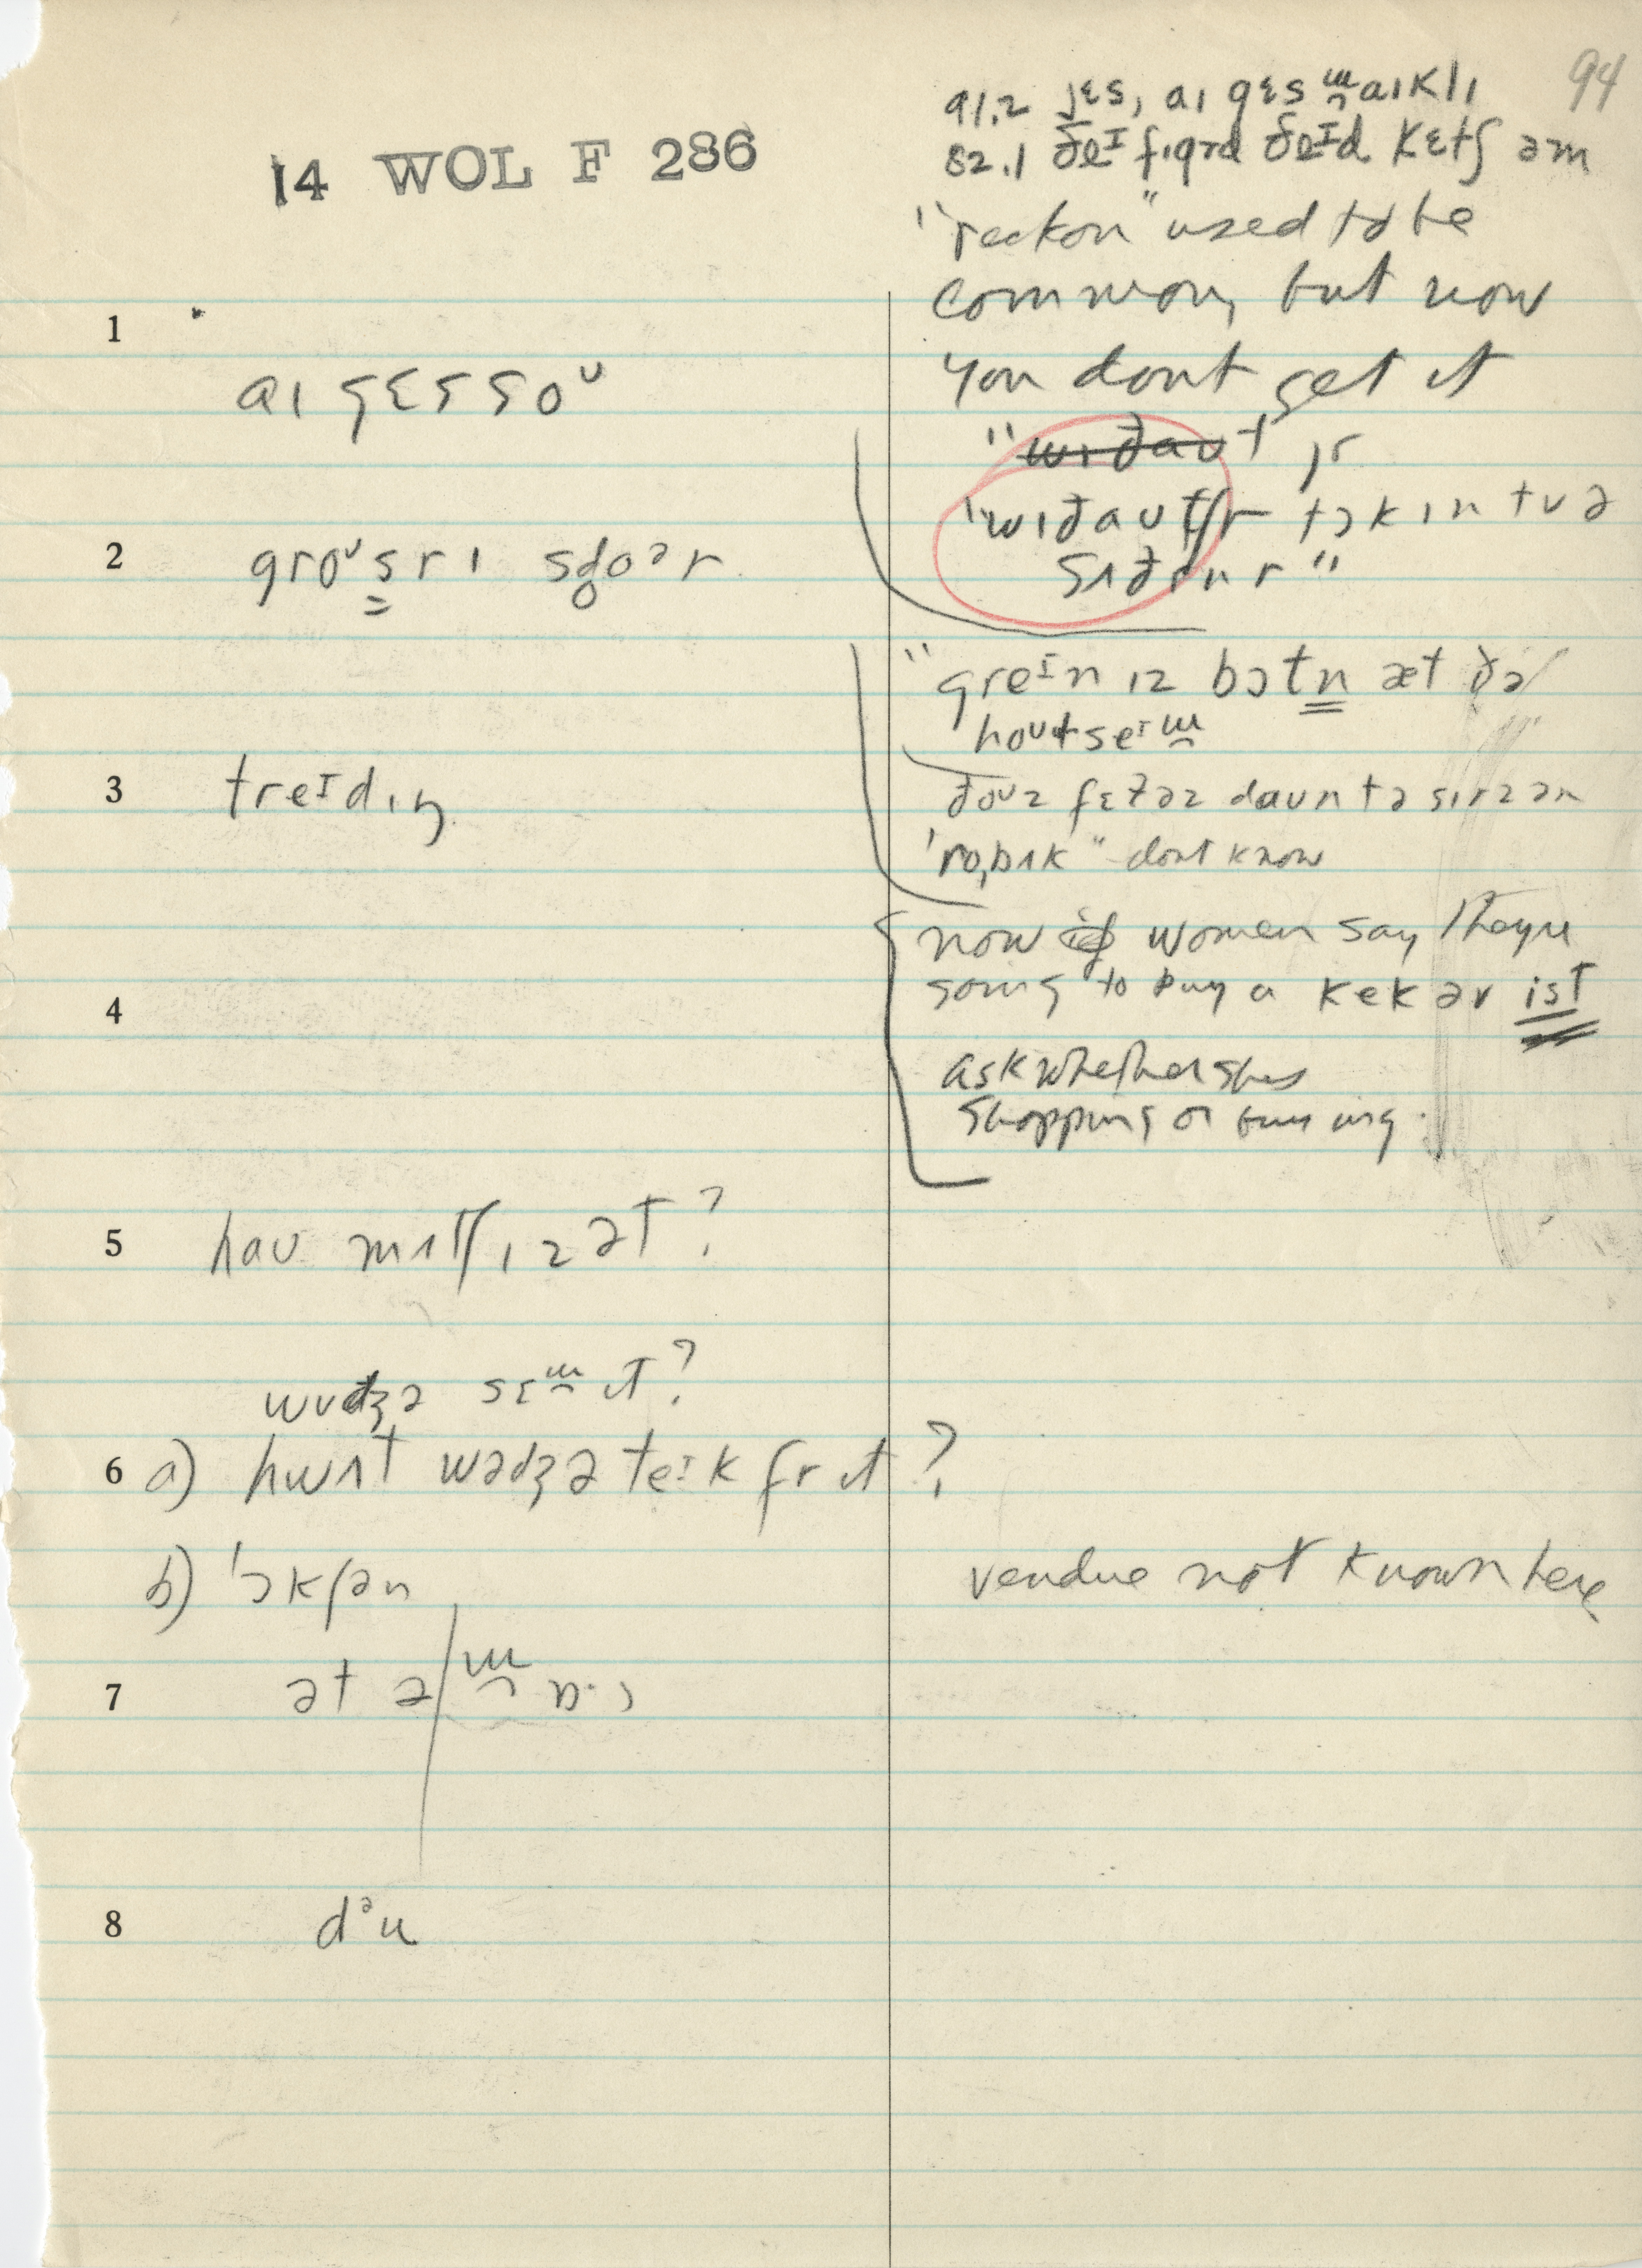 94
14 WOL F 286
91.2 jɛs, aɪ gɛs maɪkli
82.1 ðeɪ fɪgrd ðeɪd kɛtʃ əm
"reckon" used to be
common, but now
you dont get it
1
aɪ gɛs soᴜ
"wɪðaʊt jr
"wɪðaʊtʃr tɔkɪn tʊ ə
2 groᴜsrɪ sdoər
"greɪn ɪz bɔtn æt ðə
hoᴜtseɪm
3 treɪdɪŋ
ðoᴜz fɛðəz daʊn tə sɪrz ən
'ro,bʌk" dont know
now if women say theyre
going to buy a kek ər ist
4
ask whether shes
shopping or buying.
5 haʊ mʌtʃ ɪz ət?
wʊdʒə sɛm ɪt?
6 a) hwʌt wədʒə teɪk fr ɪt?
b) 'ɔkʃən
vendue not known here
7 ət ə
8 dᵊu